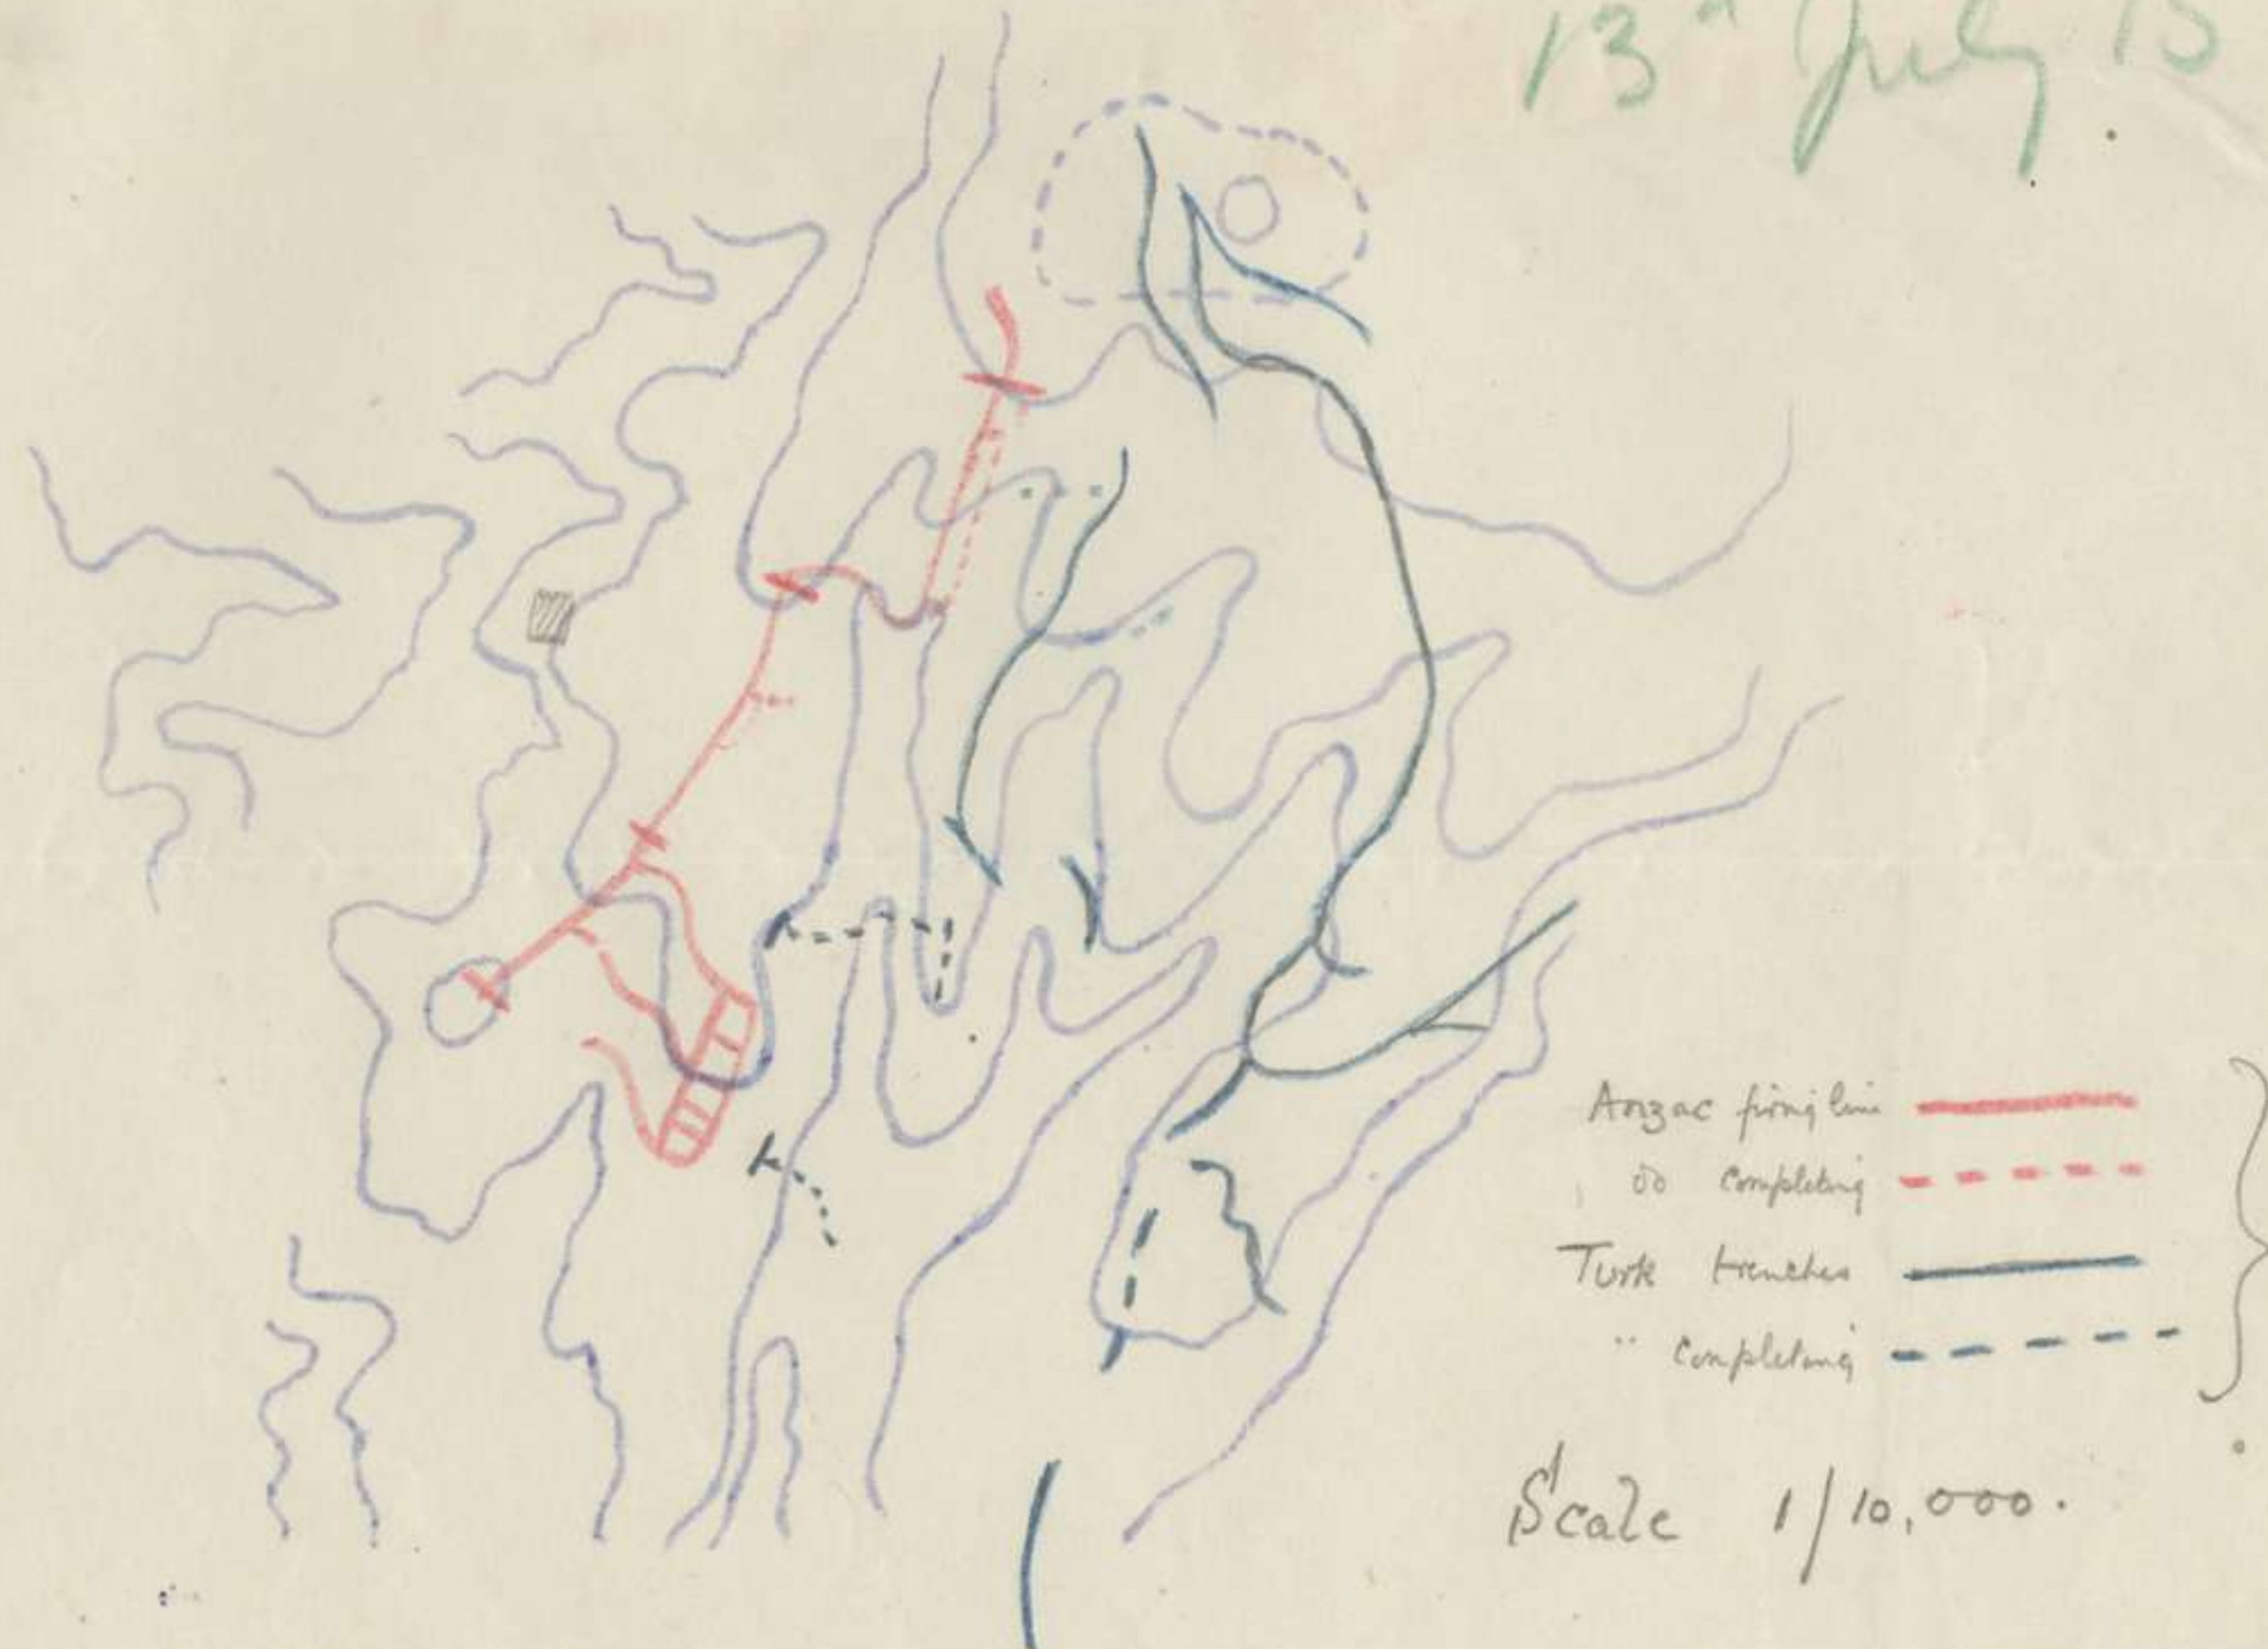 13th July 15
Anzac firing line
do completing
Turk trenches
" completing
Scale 1/10,000.